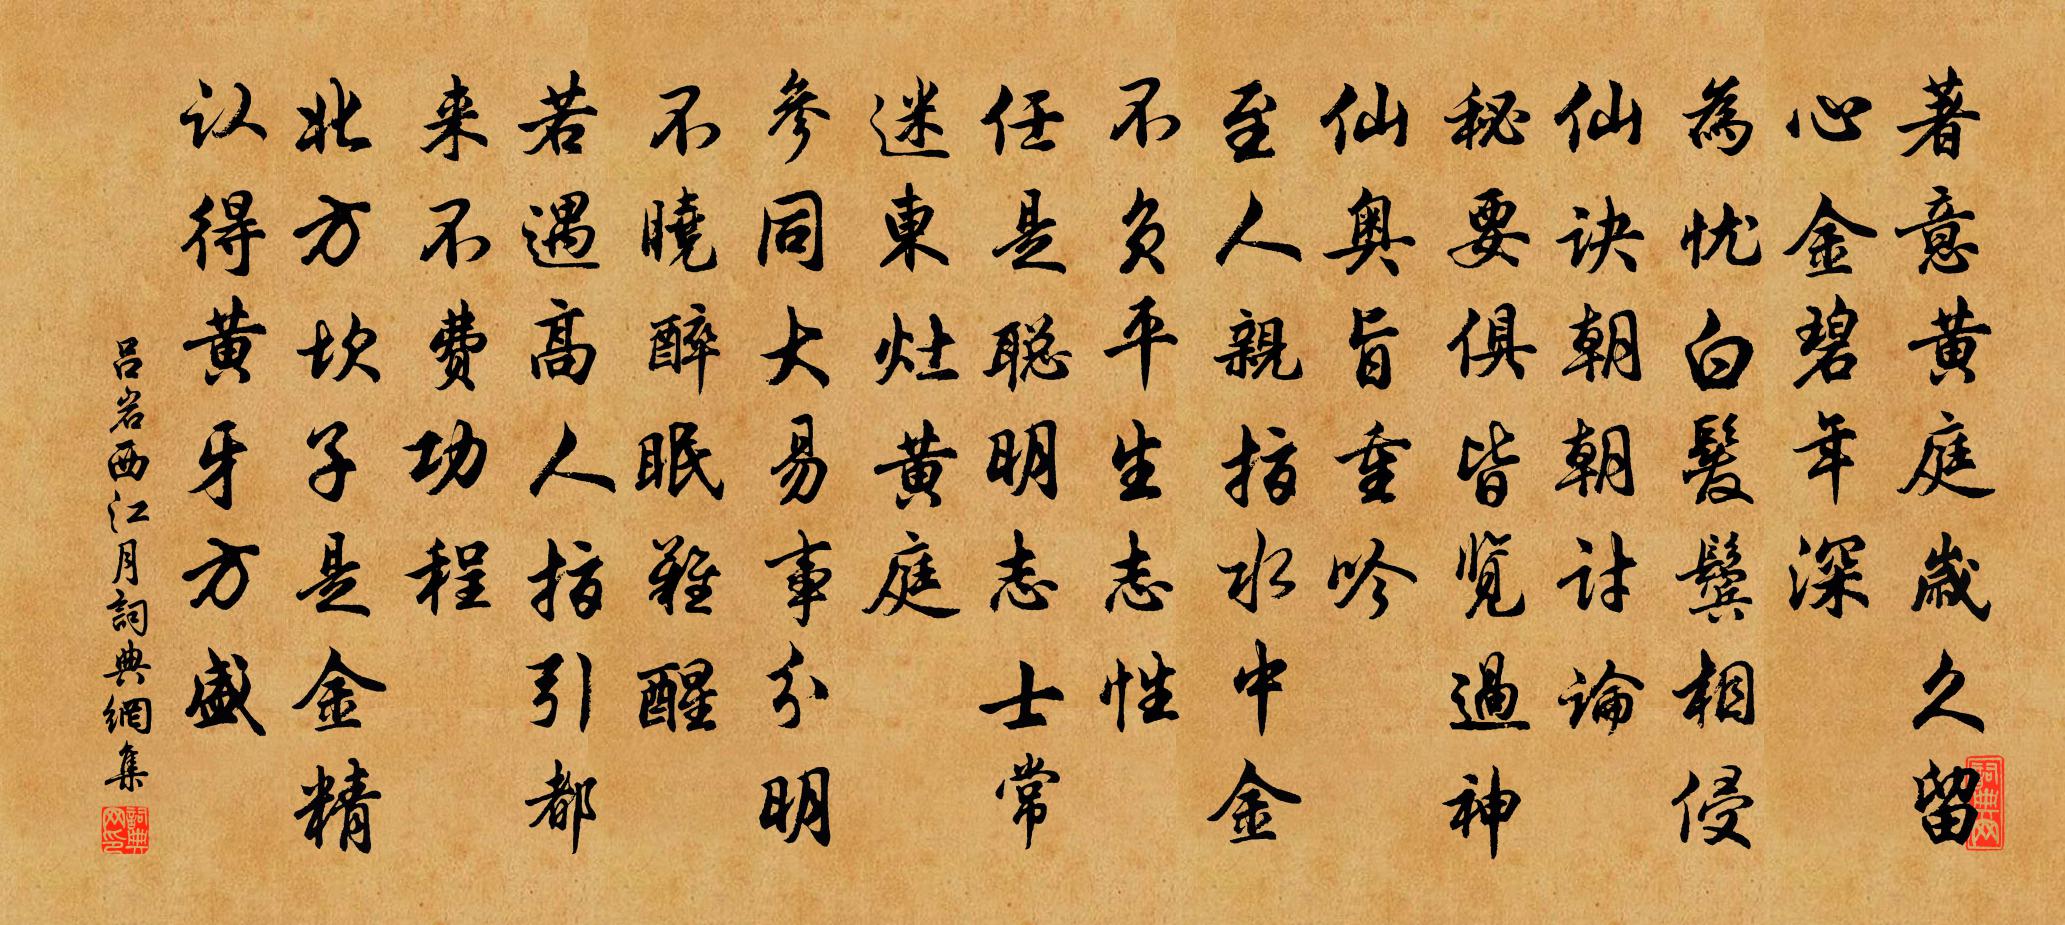 著意黄庭歲久留
心金碧年深
為忧白髮鬓相侵
仙诀朝朝討論
秘要俱皆覧過神
仙奥旨重吟
至人親指水中金
不负平生志性
任是聪明志士常
迷東灶黄庭
參同大易事分明
不曉醉眠難醒
若遇高人指引都
来不費功程
北方坎子是金精
认得黄牙方盛
吕岩西江月詞典網集
詞典网
詞典网印